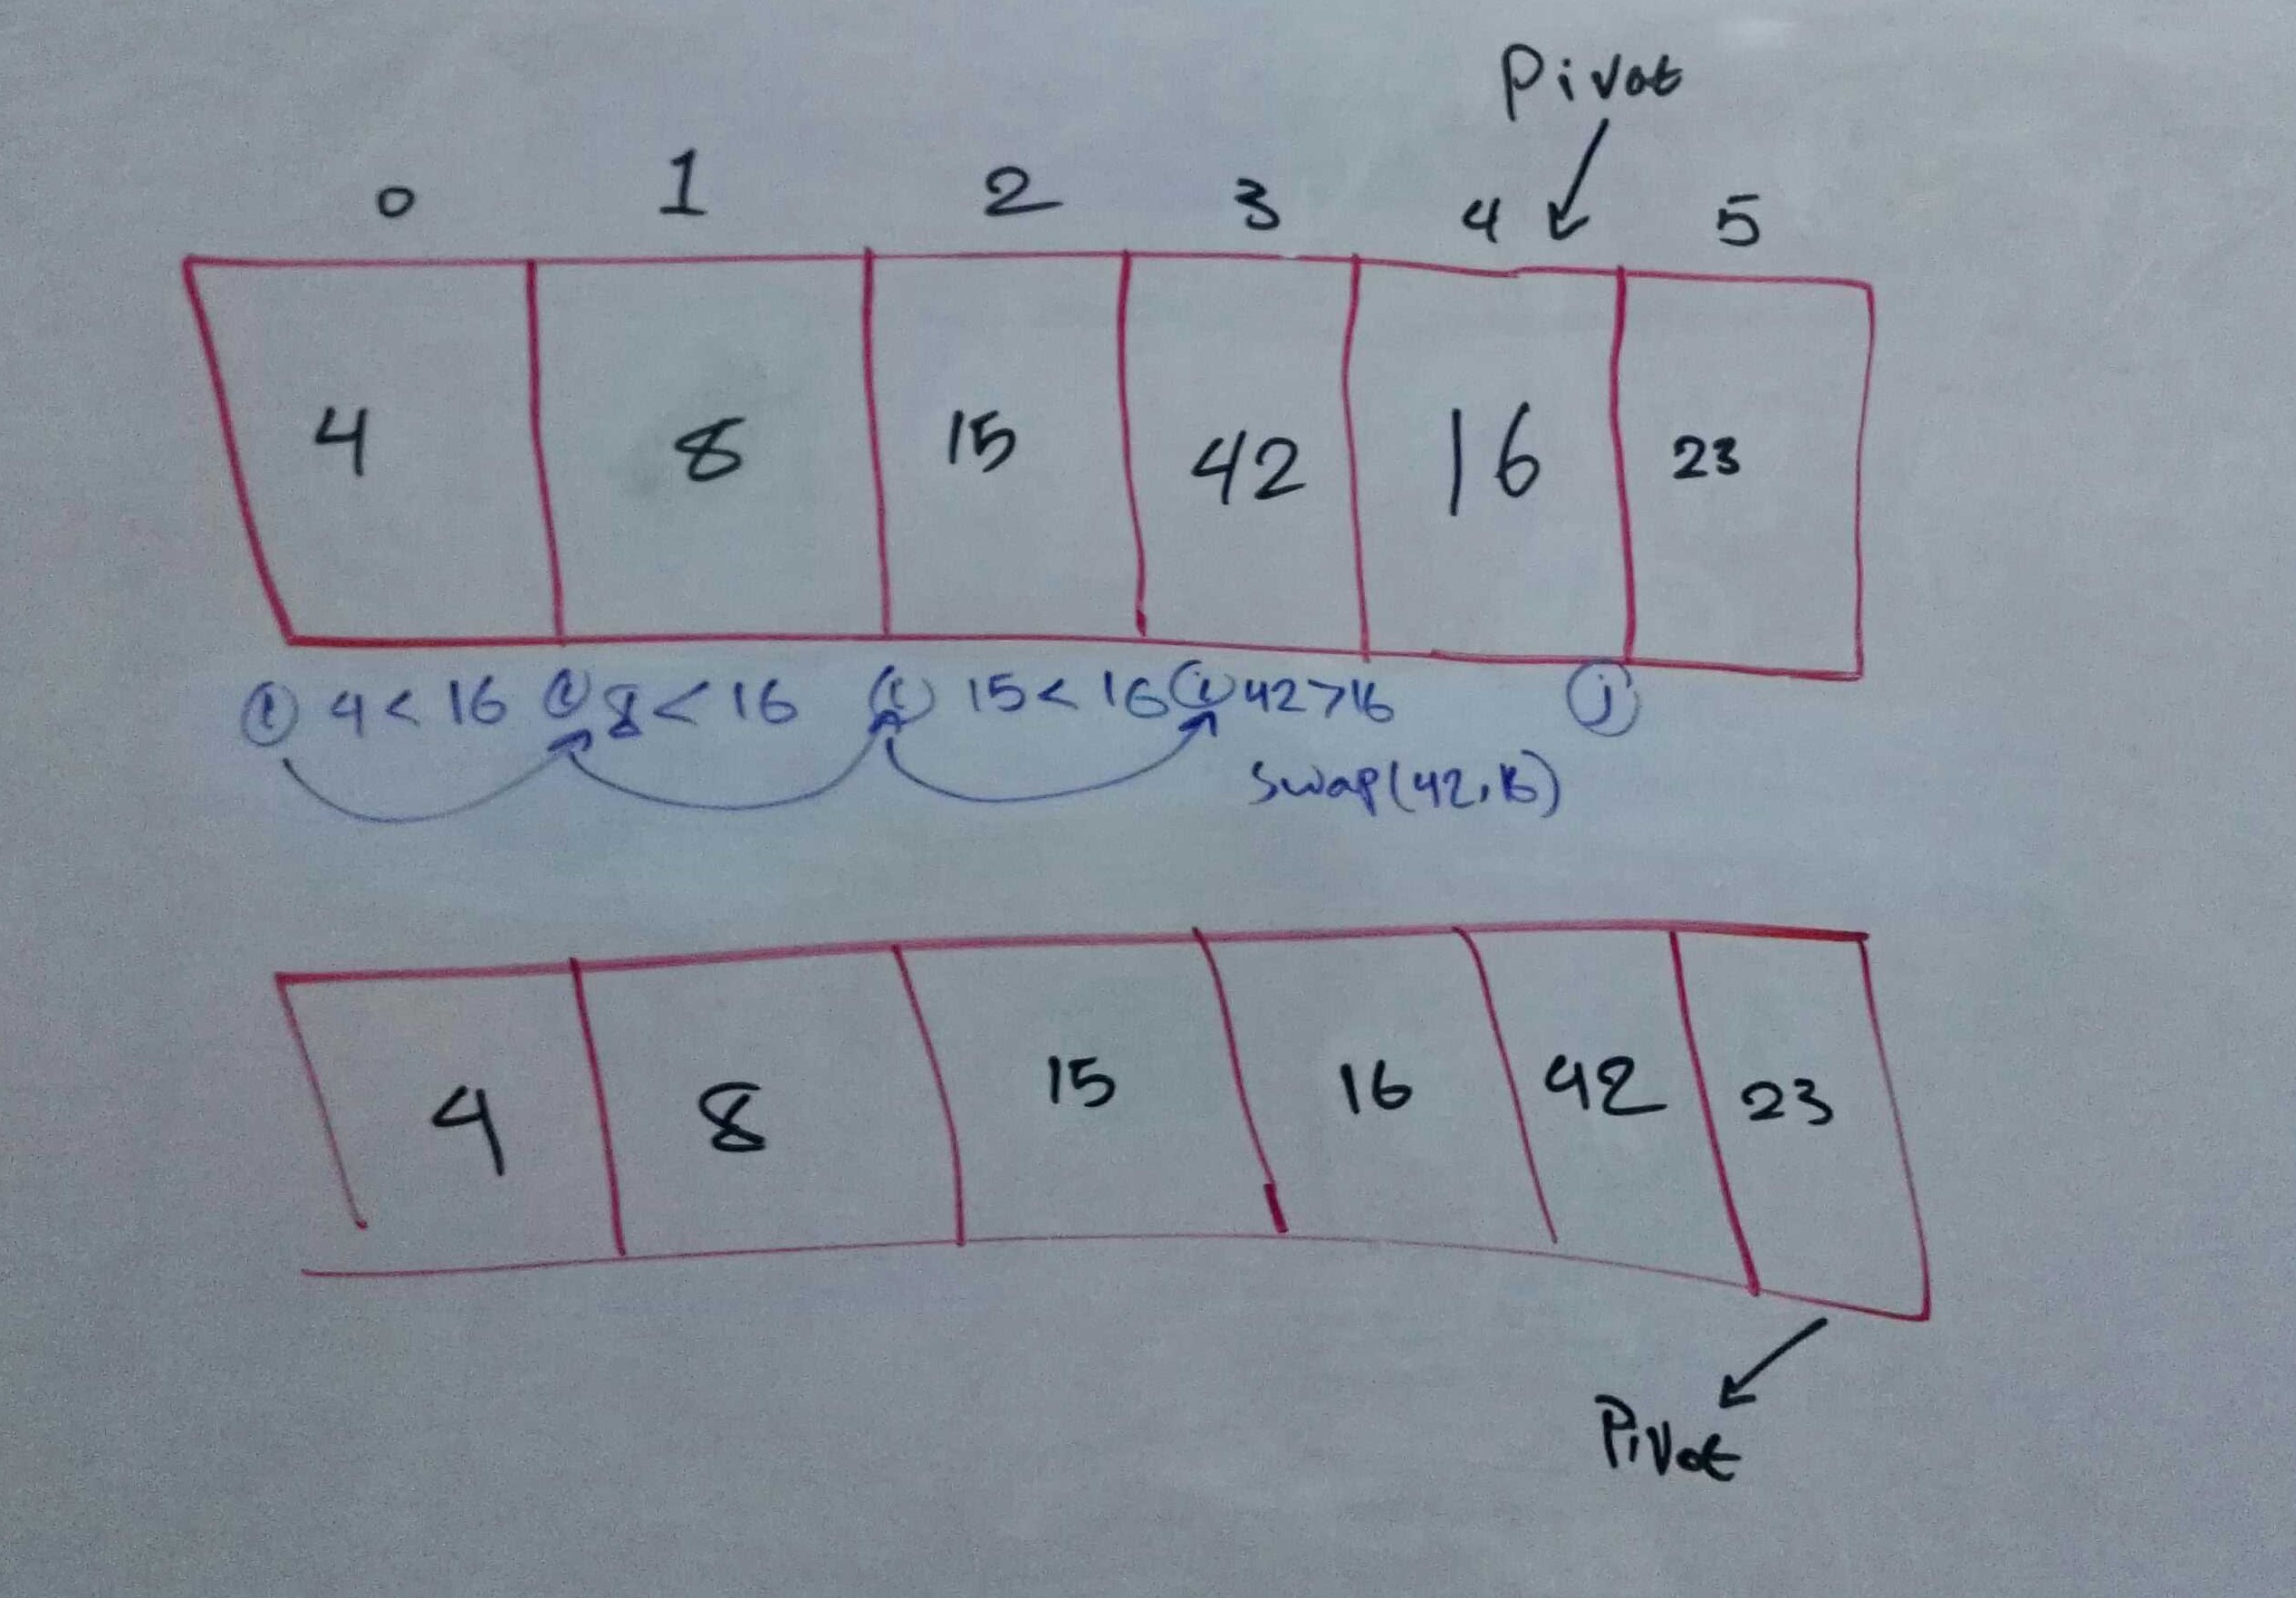 Pivot
0 1 2 3 4 5
4 8 15 42 16 23
i 4<16 i 8<16 i 15<16 i 42>16 j
swap(42,16)
4 8 15 16 42 23
Pivot